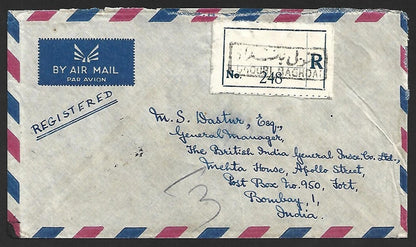 BY AIR MAIL
PAR AVION
REGISTERED
R
No. 248
BAGHDAD
M. S. Dastur, Esq.,
General Manager,
The British India General Insce. Co. Ltd.,
Mehta House, Apollo Street,
Post Box No. 950, Fort,
Bombay, 1
India.
3